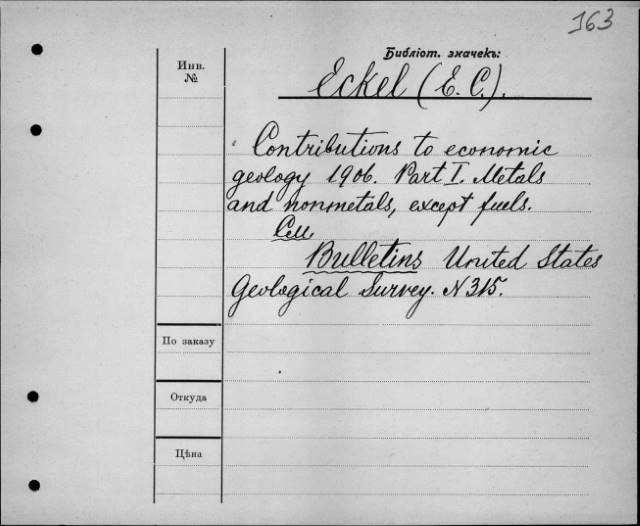 163
Библіот. значекъ:
Инв.
№
Eckel (E. C.).
Contributions to economic
geology 1906. Part I. Metals
and nonmetals, except fuels.
См.
Bulletins United States
Geological Survey. N 315.
По заказу
Откуда
Цѣна